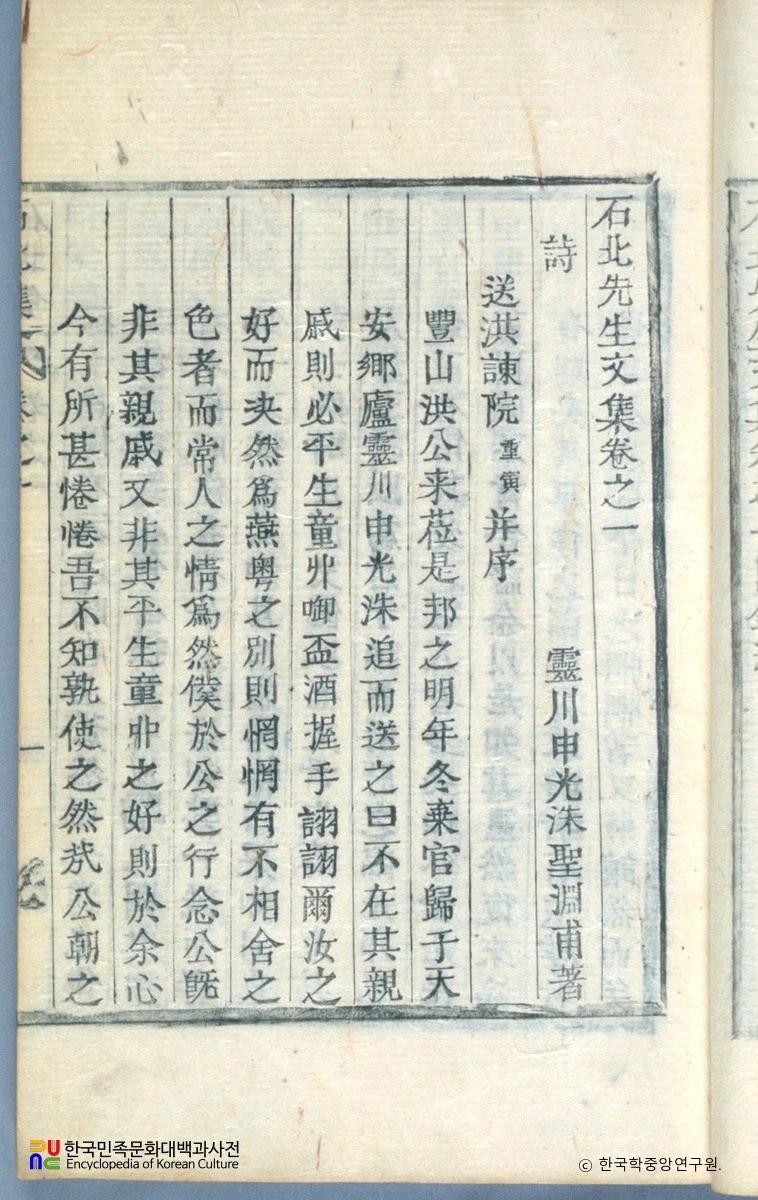 石北先生文集卷之一
詩
靈川申光洙聖淵甫著
送洪諫院重寅并序
豐山洪公来莅是邦之明年冬棄官歸于天
安鄉廬靈川申光洙追而送之曰不在其親
戚則必平生童丱啣盃酒握手詡詡爾汝之
好而决然爲燕粤之別則惘惘有不相舍之
色者而常人之情爲然僕於公之行念公旣
非其親戚又非其平生童丱之好則於余心
今有所甚惓惓吾不知孰使之然㢤公朝之
石北集
卷之一
一
한국민족문화대백과사전
Encyclopedia of Korean Culture
ⓒ 한국학중앙연구원.